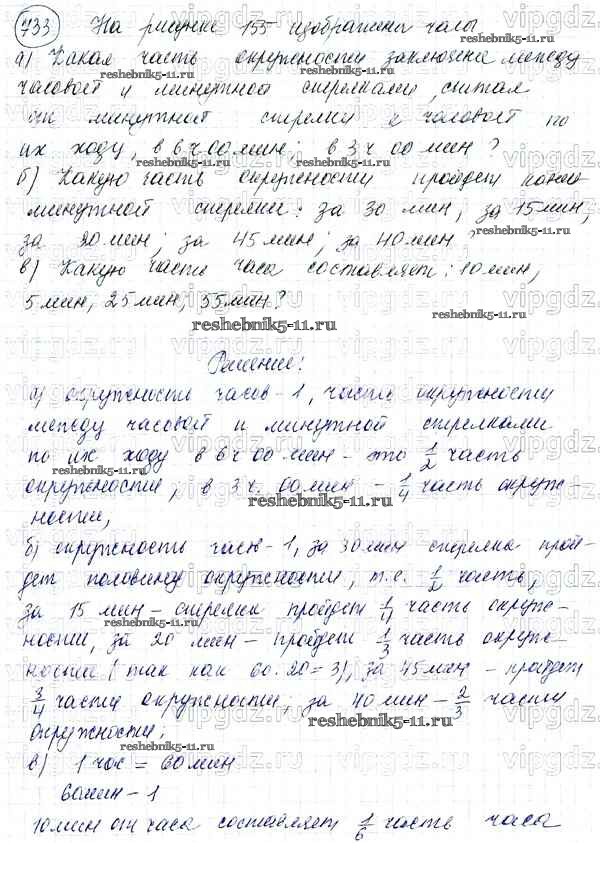 733 На рисунке 155 изображены часы
а) Какая часть окружности заключена между
часовой и минутной стрелками, считая
от минутной стрелки к часовой по
их ходу, в 6 ч 00 мин; в 3 ч 00 мин?
б) Какую часть окружности пройдет конец
минутной стрелки: за 30 мин, за 15 мин,
за 20 мин; за 45 мин; за 40 мин?
в) Какую часть часа составляет: 10 мин,
5 мин, 25 мин, 55 мин?
Решение:
а) окружность часов - 1, часть окружности
между часовой и минутной стрелками
по их ходу в 6 ч 00 мин - это 1/2 часть
окружности; в 3 ч. 00 мин - 1/4 часть окруж-
ности;
б) окружность часов - 1, за 30 мин стрелка прой-
дет половину окружности, т.е. 1/2 часть,
за 15 мин - стрелка пройдет 1/4 часть окруж-
ности, за 20 мин - пройдет 1/3 часть окруж-
ности (так как 60:20=3), за 45 мин - пройдет
3/4 части окружности; за 40 мин - 2/3 части
окружности;
в) 1 час = 60 мин
60 мин - 1
10 мин от часа составляет 1/6 часть часа
reshebnik5-11.ru
vipgdz.